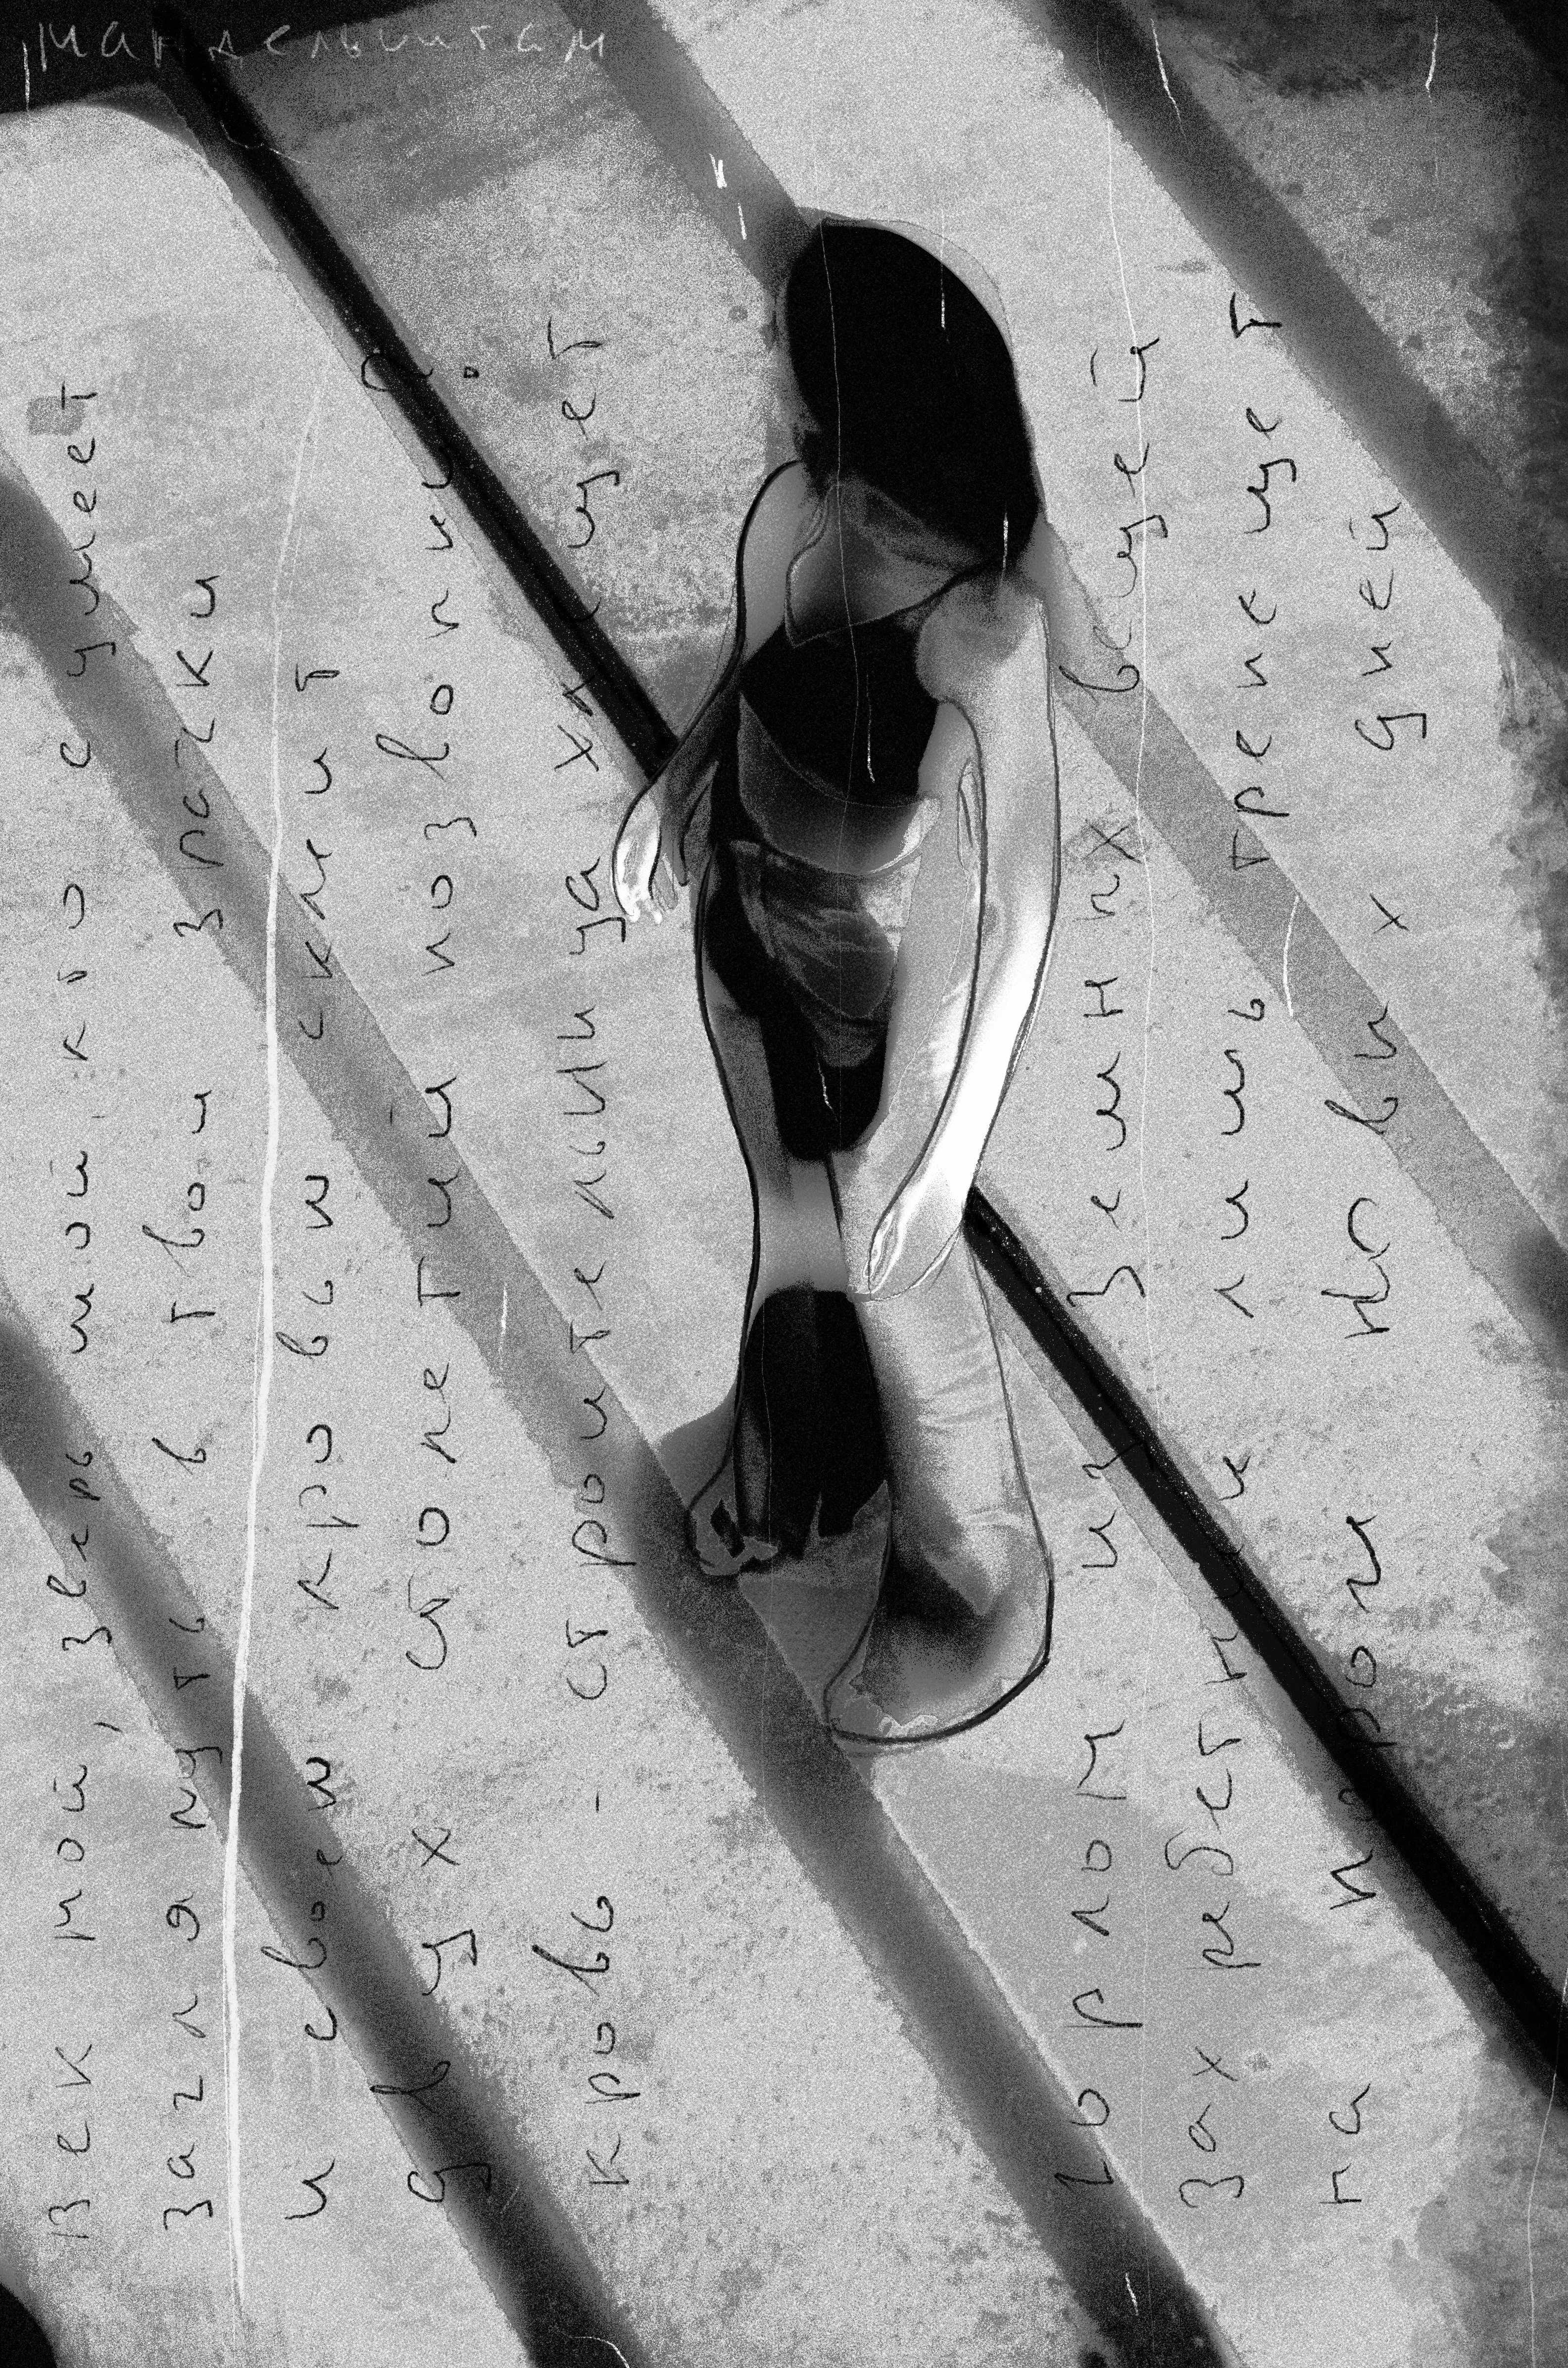 мандельштам
Век мой, зверь мой, кто сумеет
заглянуть в твои зрачки
и своею кровью склеит
двух столетий позвонки.
кровь - строительница хлещет
горлом из земных вещей
Захребетник лишь трепещет
на пороге новых дней